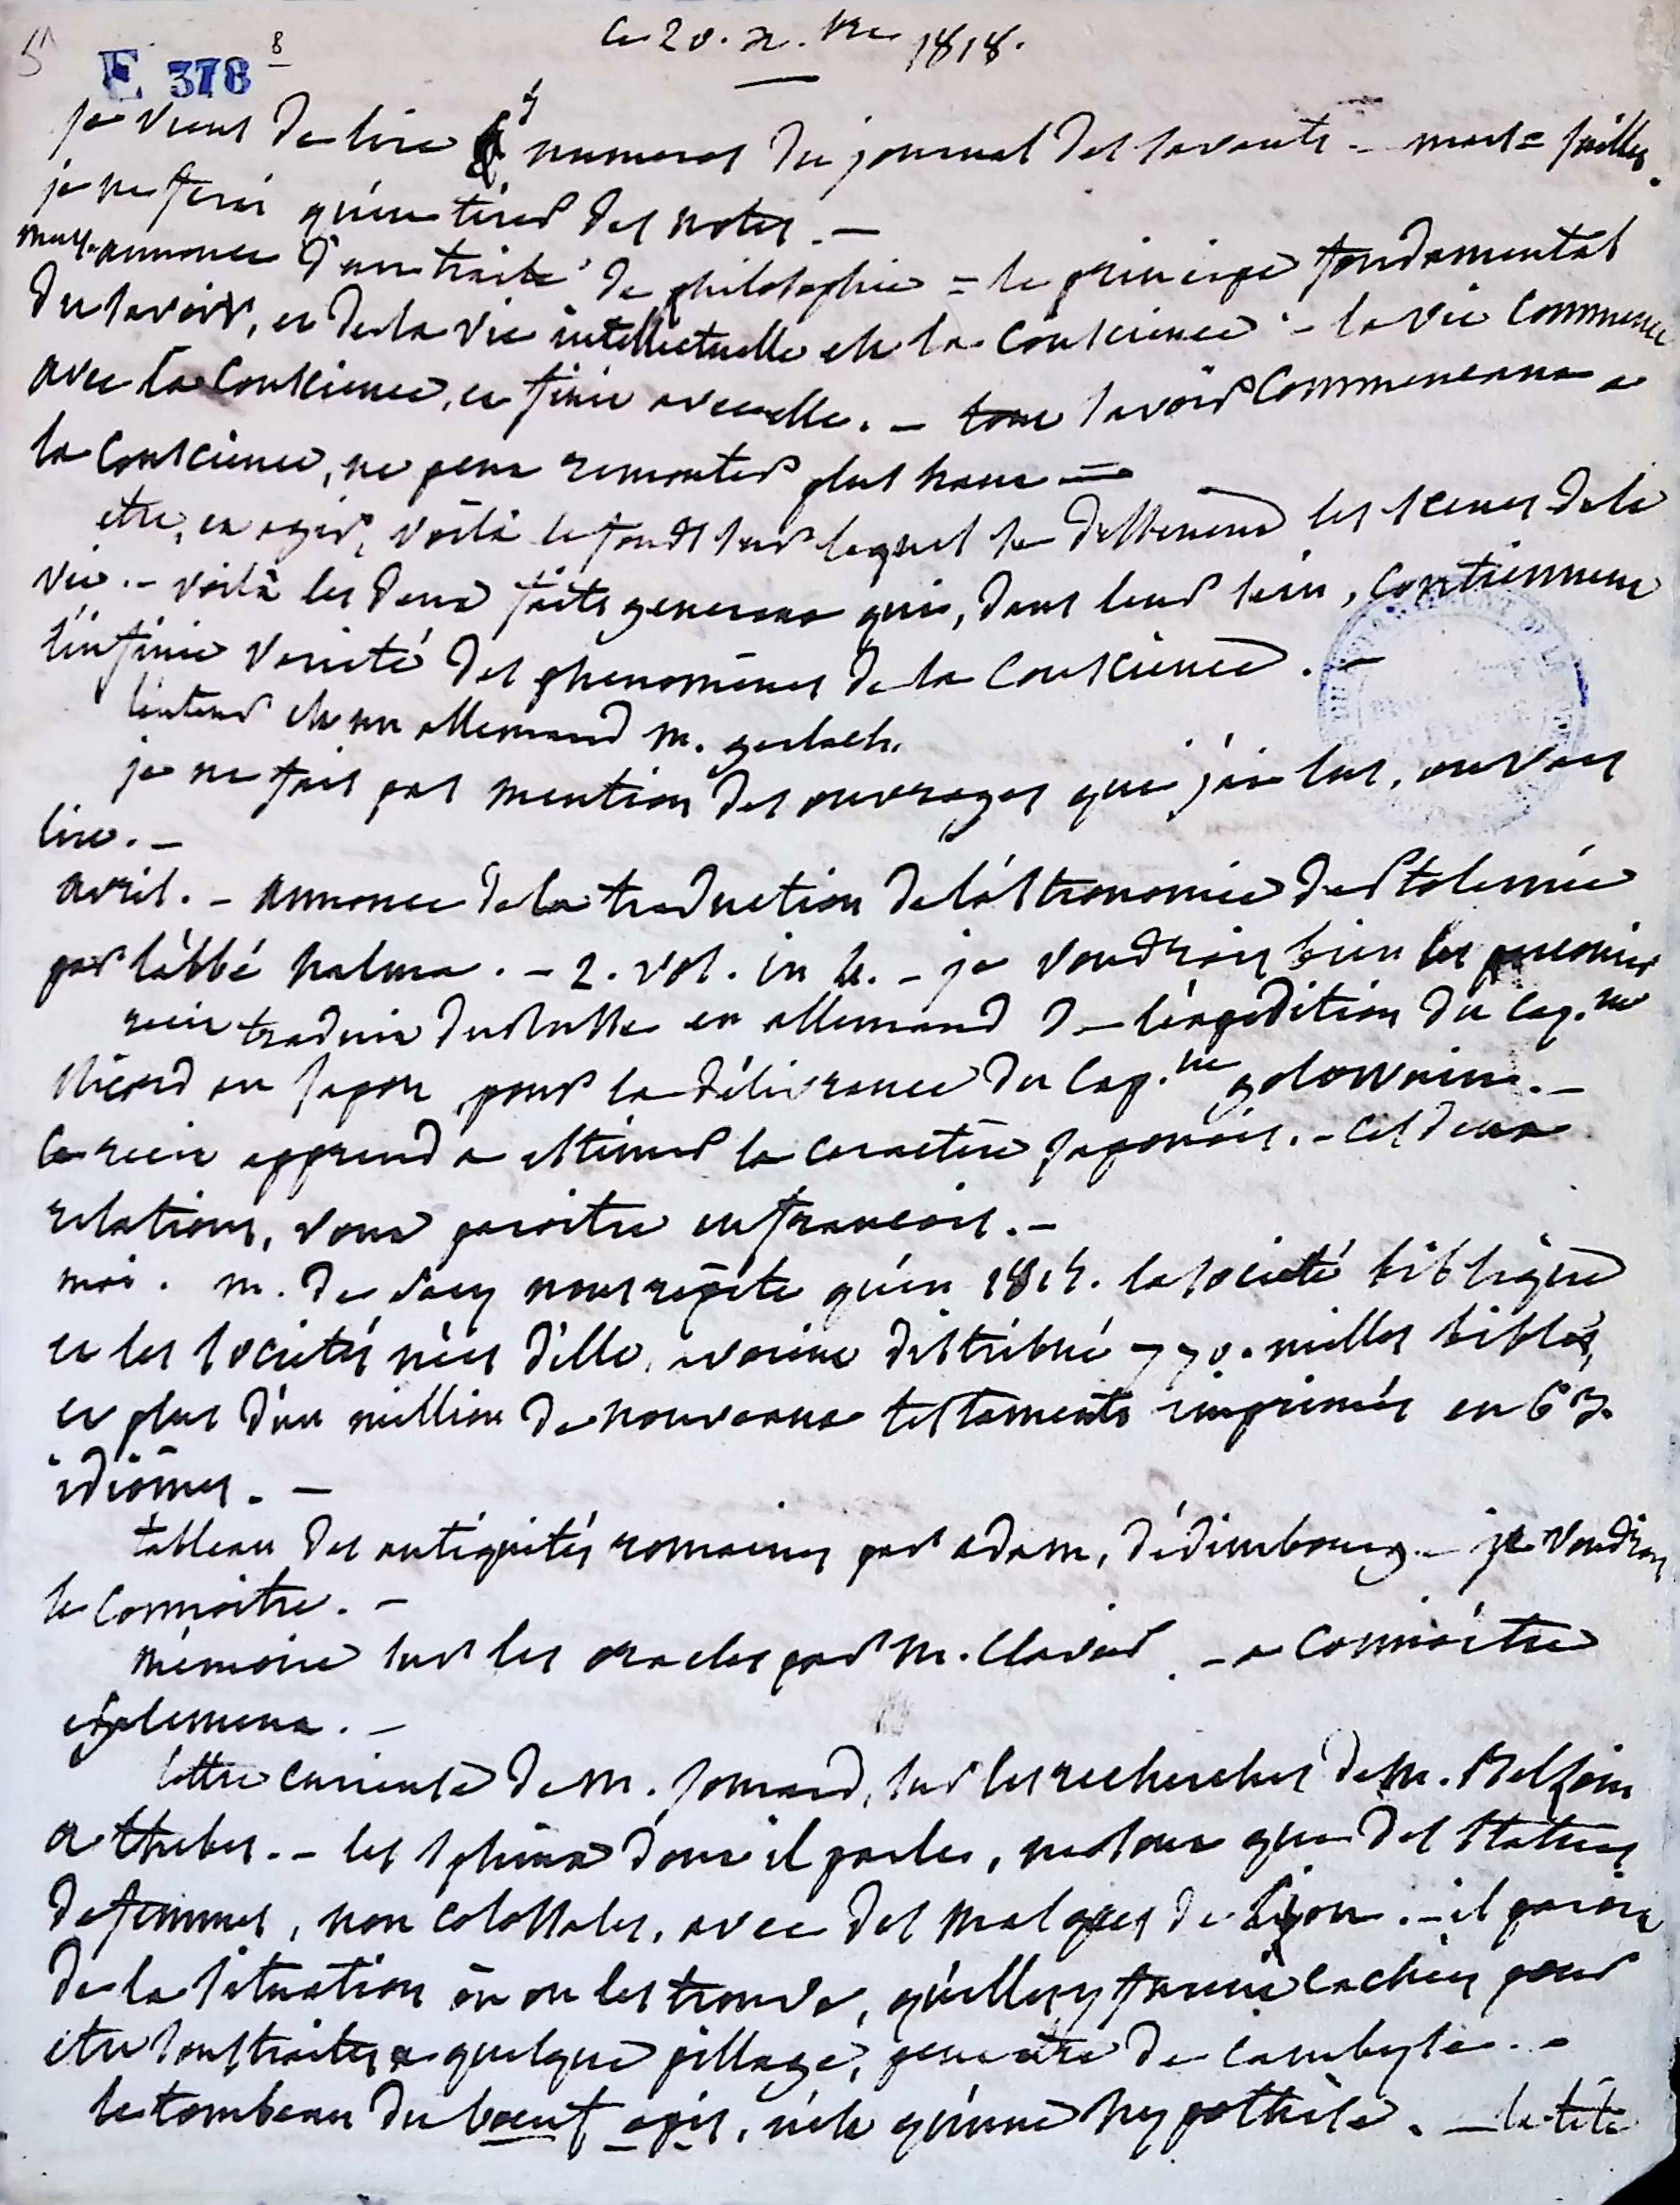 5
E 378 8
Ce 20. 9.bre 1818.
je viens de lire 5 numeros du journal des savants - mars = juillet.
je ne ferai qu'en tirer des notes. -
mars. annonce d'un traité de philosophie = le principe fondamental
du savoir, et de la vie intellectuelle est la conscience - la vie commence
avec la conscience, et finit avec elle. - tout savoir commencant a
la conscience, ne peut remonter plus haut =
etre, et agir, voilà le fonds sur lequel se dessinent les scenes de la
vie. - voilà les deux faits generaux qui, dans leur sein, contiennent
l'infinie varieté des phenomènes de la conscience. -
l'auteur est un allemand m. gerlach.
je ne fais pas mention des ouvrages que j'ai lus, ou vais
lire. -
avril. - annonce de la traduction de l'astronomie de Ptolemée
par l'abbé halma. - 2. vol. in 4. - je voudrois bien les parcourir
recit traduit du Russe en allemand de l'expedition du cap.ne
Ricord au Japon pour la délivrance du cap.ne golownin. -
Ce recit apprend a estimer le caractère Japonais. - ces deux
relations, vont paroitre en francois. -
mai. m. de Sacy nous repète qu'en 1815. la societé biblique
et les societés nées d'elle, avoient distribué 770. milles bibles,
et plus d'un million de nouveaux testaments imprimés en 63.
idiômes. -
tableau des antiquités romaines par adam, d'édimbourg - je voudrois
le connoitre. -
mémoire sur les oracles par m. Clavier. - a connoître
egalement. -
lettre curieuse de m. Jomard, sur les recherches de m. Belzoni
a thebes. - les sphinx dont il parle, ne sont que des statues
de femmes, non colossales, avec des masques de Lion. - il paroit
de la situation où on les trouve, qu'elles y furent cachées pour
etre soustraites a quelque pillage, peut etre de cambyse. -
le tombeau du boeuf apis, n'est qu'une hypothèse. - la tête